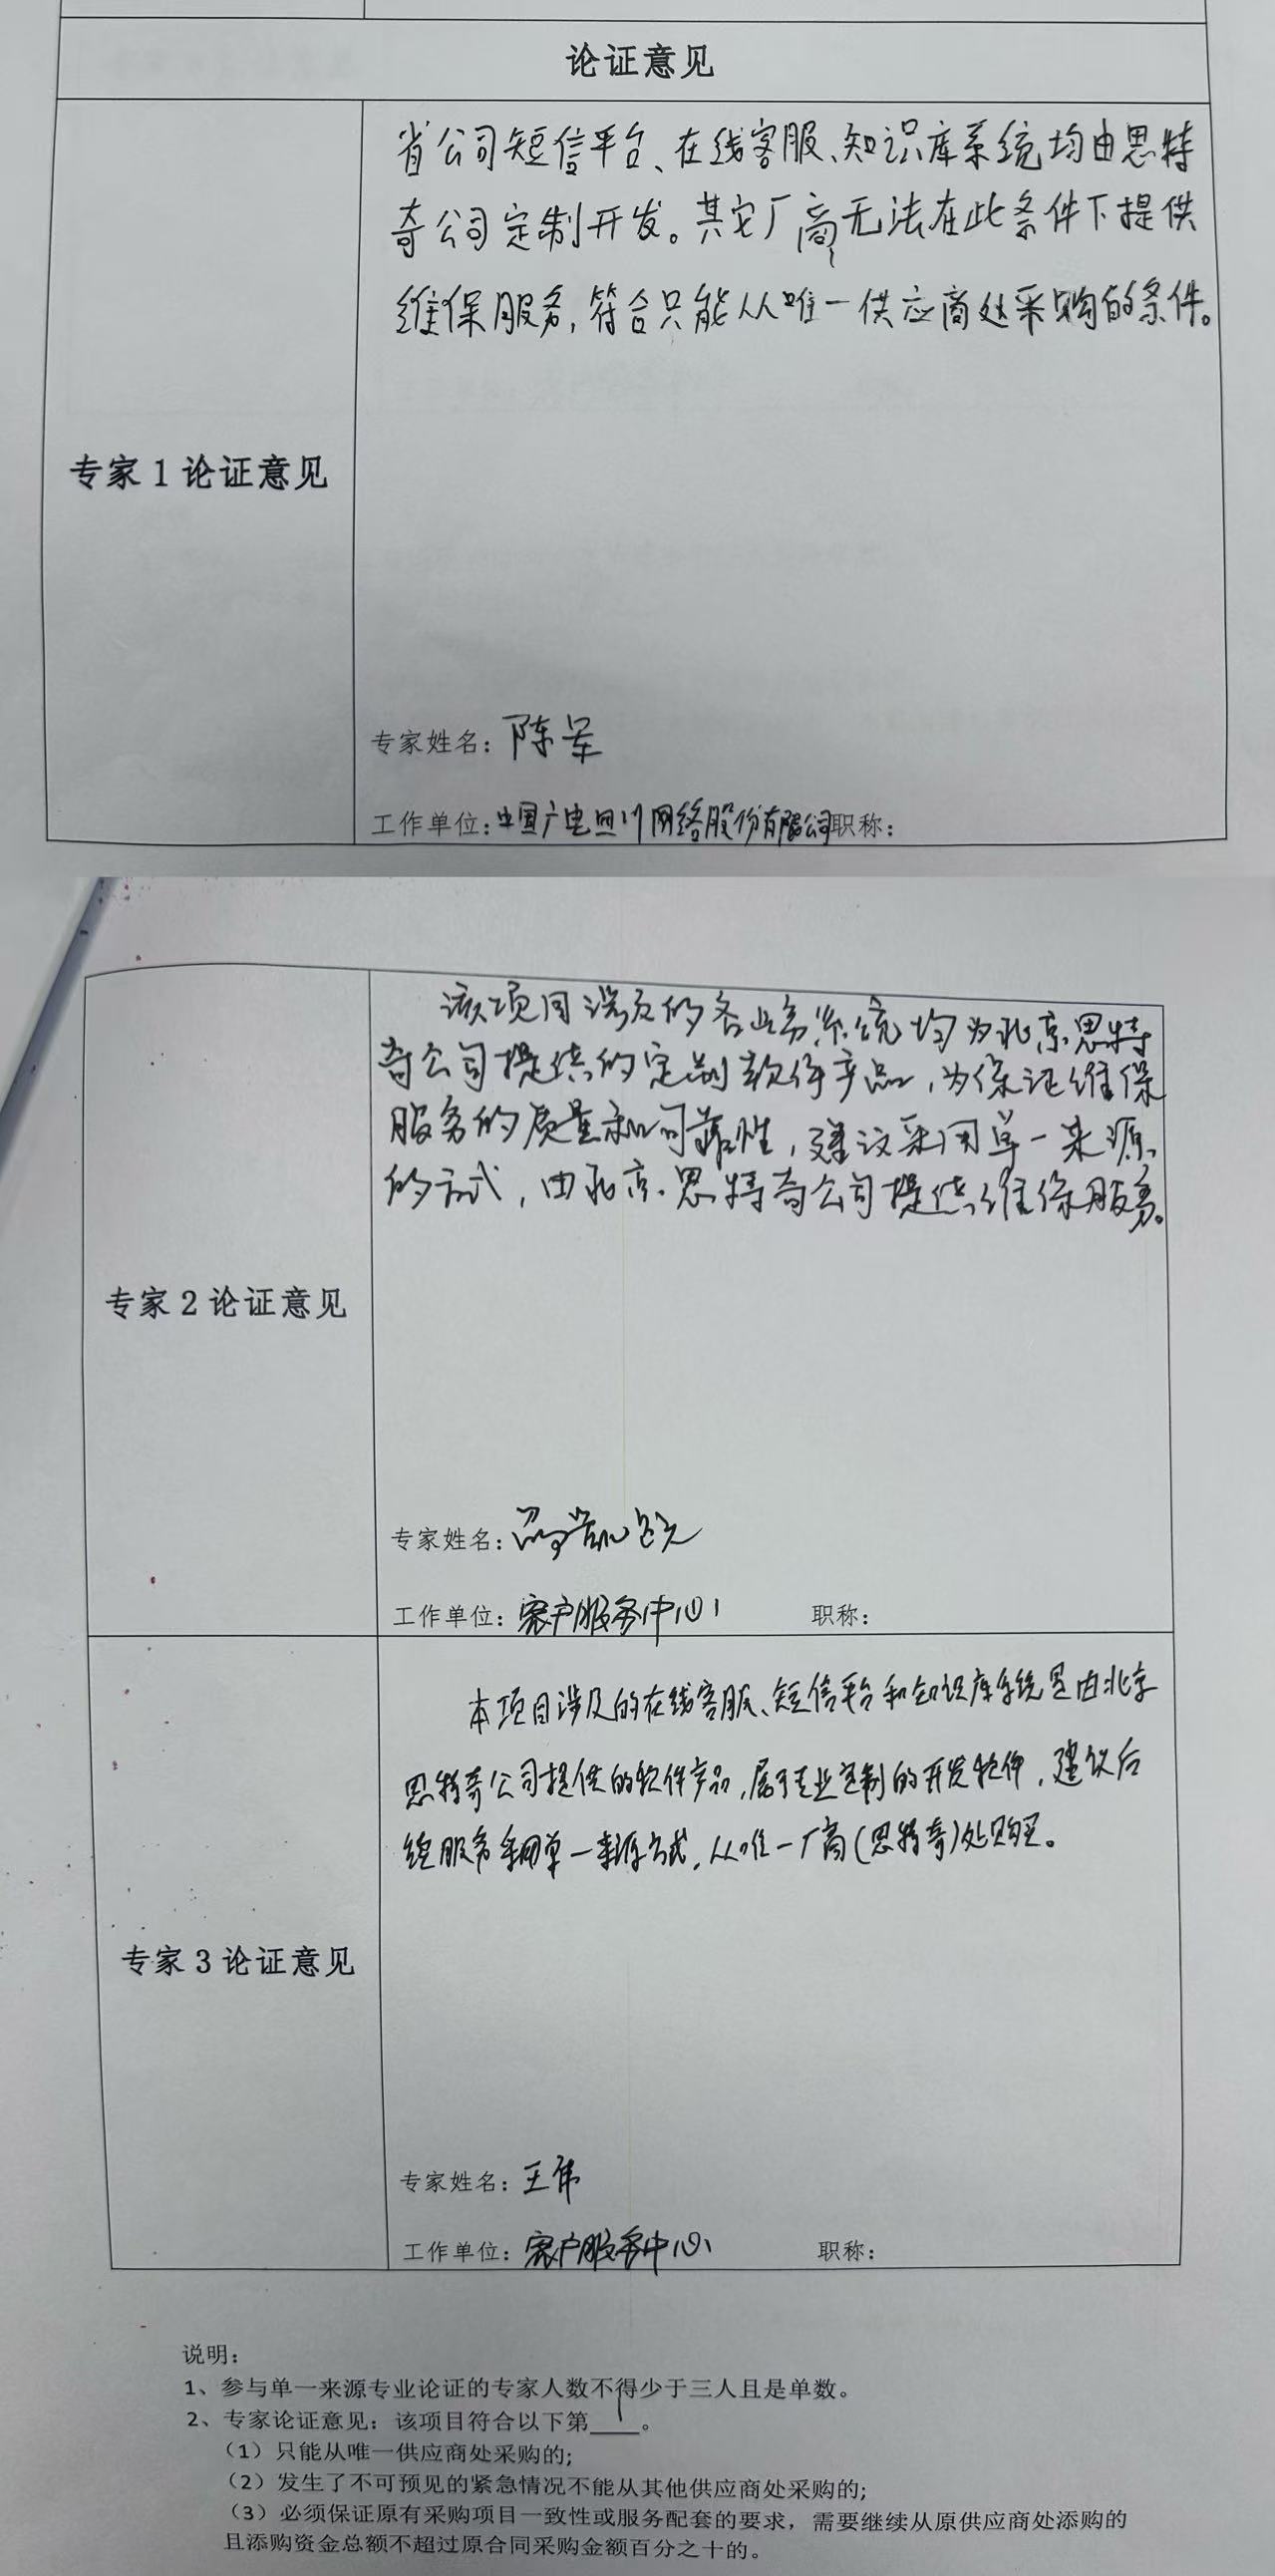 论证意见
省公司短信平台、在线客服、知识库系统均由思特
奇公司定制开发。其它厂商无法在此条件下提供
维保服务,符合只能从唯一供应商处采购的条件。
专家1论证意见
专家姓名：陈军
工作单位：中国广电四川网络股份有限公司职称：
该项目涉及的各业务系统均为北京思特
奇公司提供的定制软件产品,为保证维保
服务的质量和可靠性,建议采用单一来源
的方式,由北京思特奇公司提供维保服务。
专家2论证意见
专家姓名：
工作单位：客户服务中心 职称：
本项目涉及的在线客服、短信平台和知识库系统是由北京
思特奇公司提供的软件产品,属于专业定制的开发软件,建议后
续服务采用单一来源方式,从唯一厂商(思特奇)处购买。
专家3论证意见
专家姓名：王伟
工作单位：客户服务中心 职称：
说明：
1、参与单一来源专业论证的专家人数不得少于三人且是单数。
2、专家论证意见：该项目符合以下第1。
（1）只能从唯一供应商处采购的;
（2）发生了不可预见的紧急情况不能从其他供应商处采购的;
（3）必须保证原有采购项目一致性或服务配套的要求，需要继续从原供应商处添购的
且添购资金总额不超过原合同采购金额百分之十的。